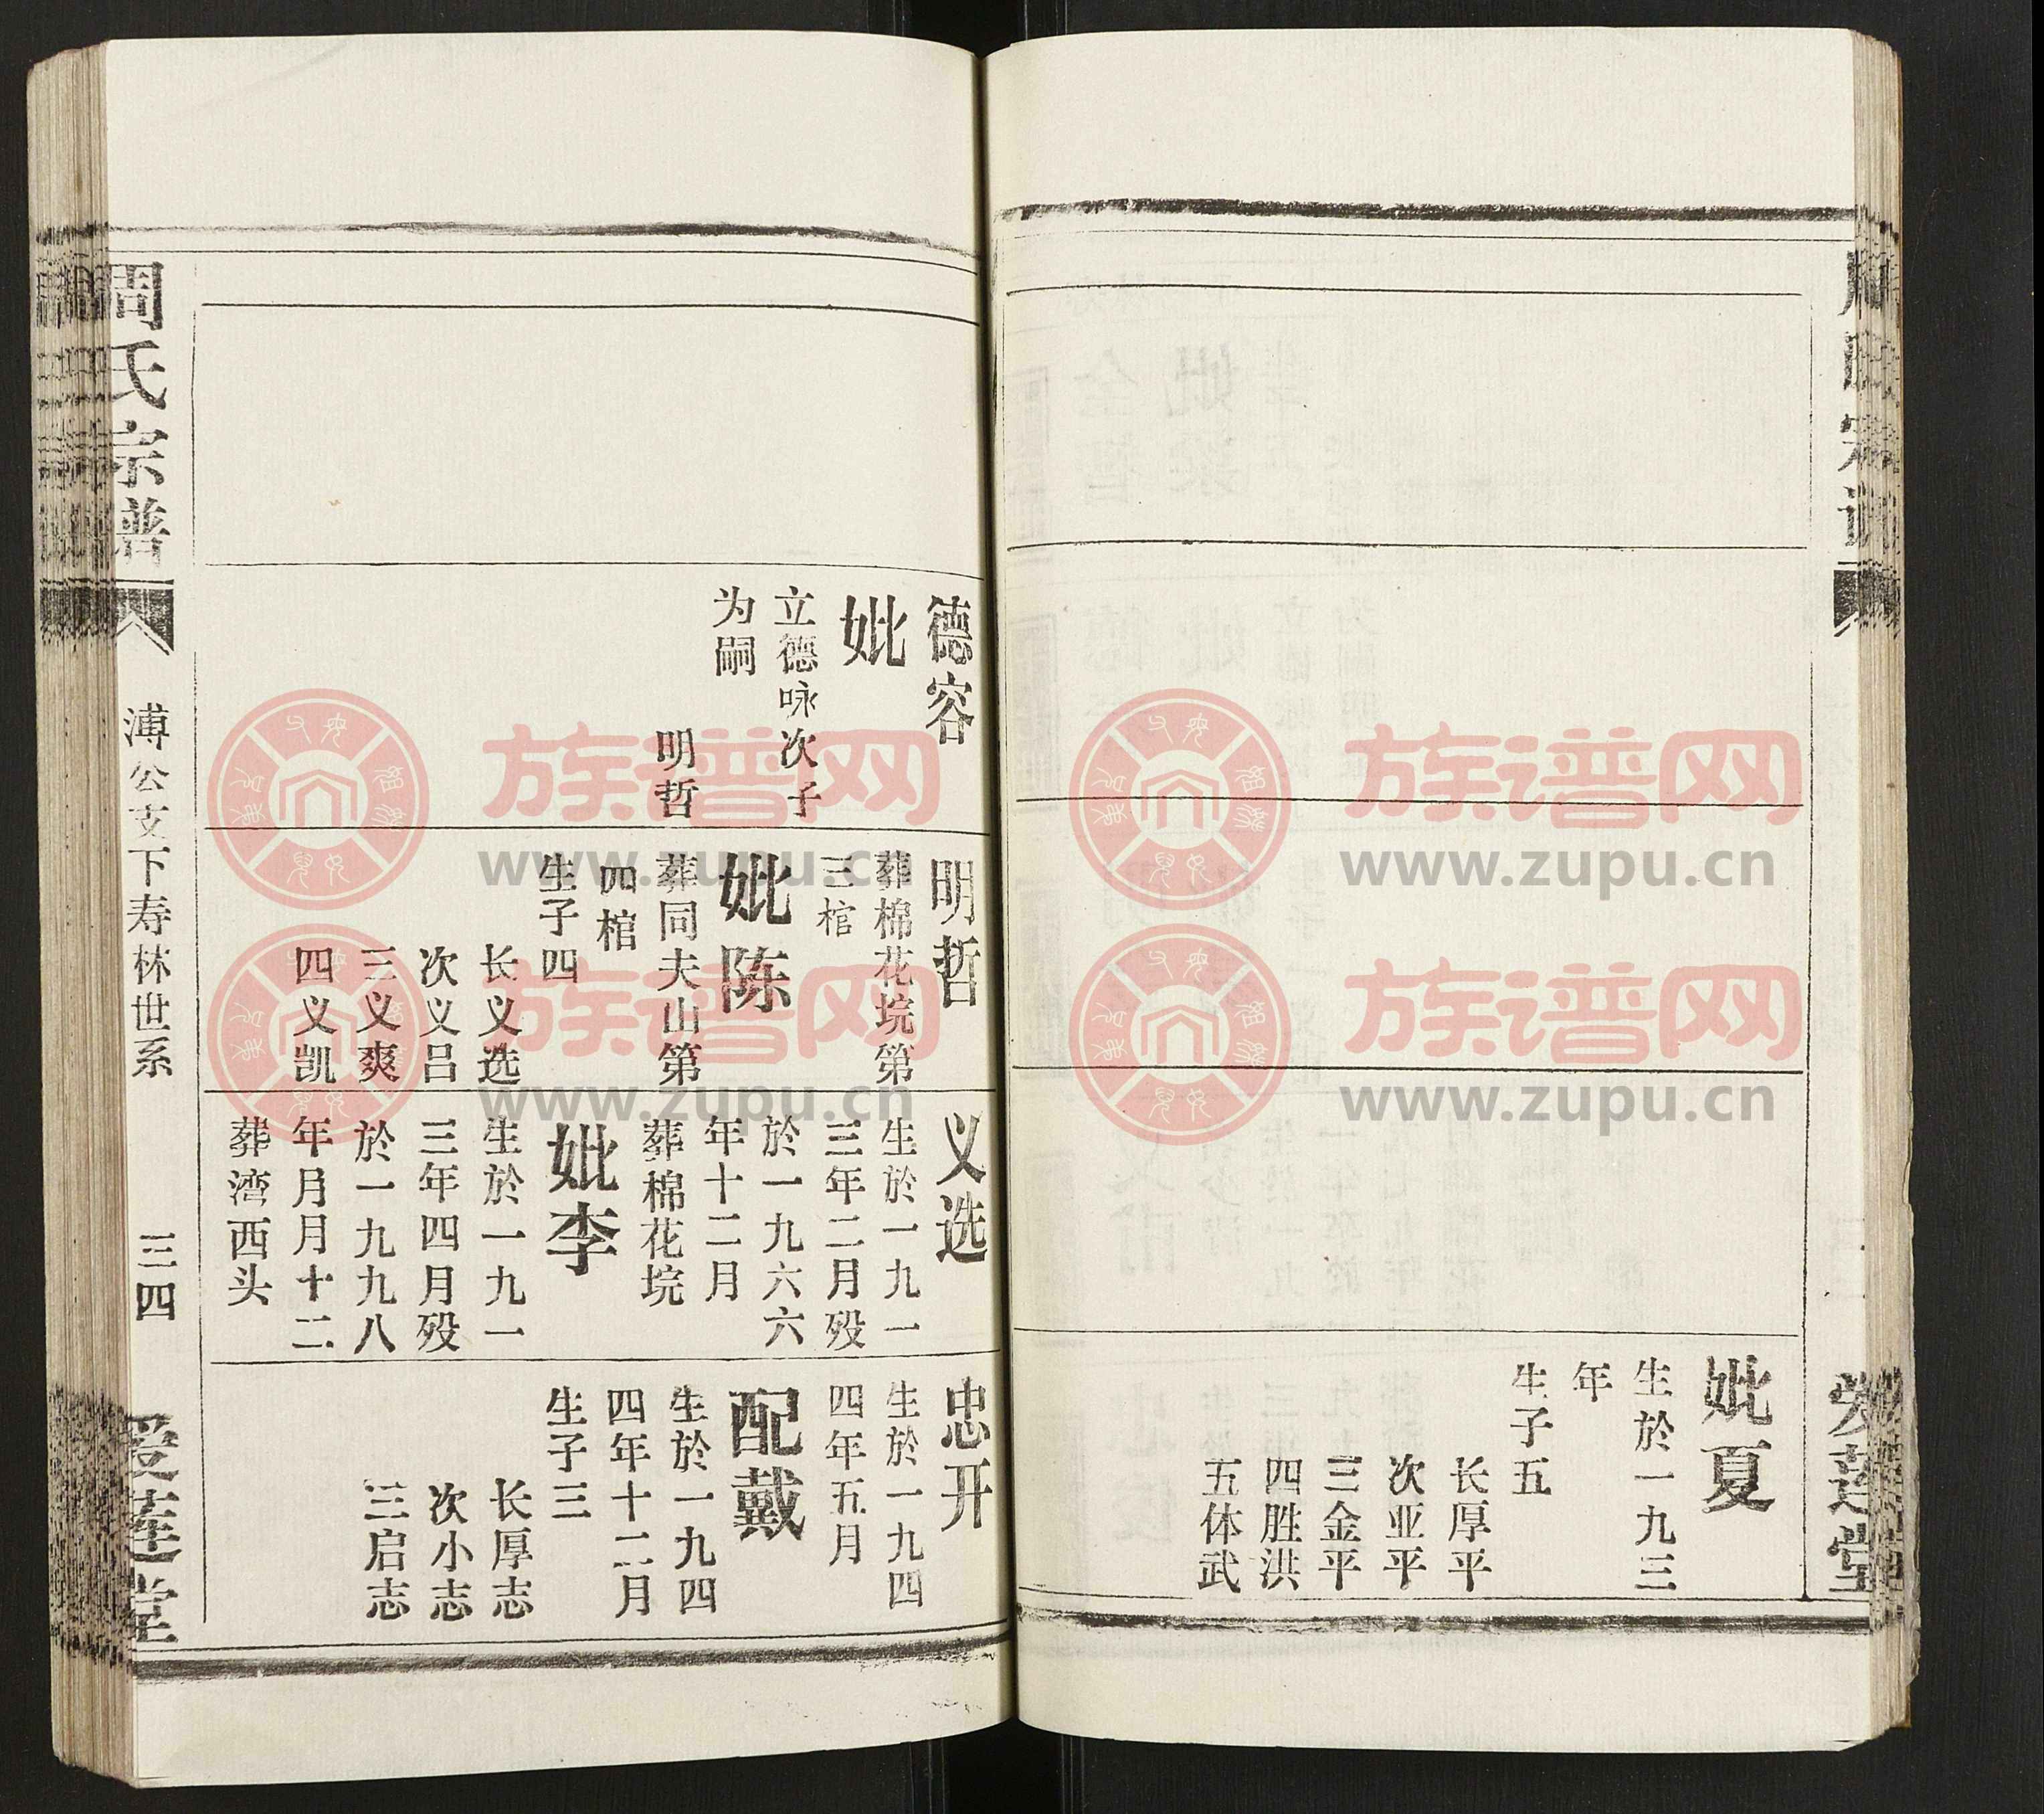 妣夏
生於一九三
年
生子五
长厚平
次亚平
三金平
四胜洪
五体武
爱莲堂
德容
妣
立德咏次子
为嗣
明哲
明哲
葬棉花垸第
三棺
妣陈
葬同夫山第
四棺
生子四
长义选
次义吕
三义爽
四义凯
义选
生於一九一
三年二月殁
於一九六六
年十二月
葬棉花垸
妣李
生於一九一
三年四月殁
於一九九八
年月月十二
葬湾西头
忠开
生於一九四
四年五月
配戴
生於一九四
四年十二月
生子三
长厚志
次小志
三启志
周氏宗谱
溥公支下寿林世系
三四
爱莲堂
族谱网
www.zupu.cn
族谱网
www.zupu.cn
族谱网
www.zupu.cn
族谱网
www.zupu.cn